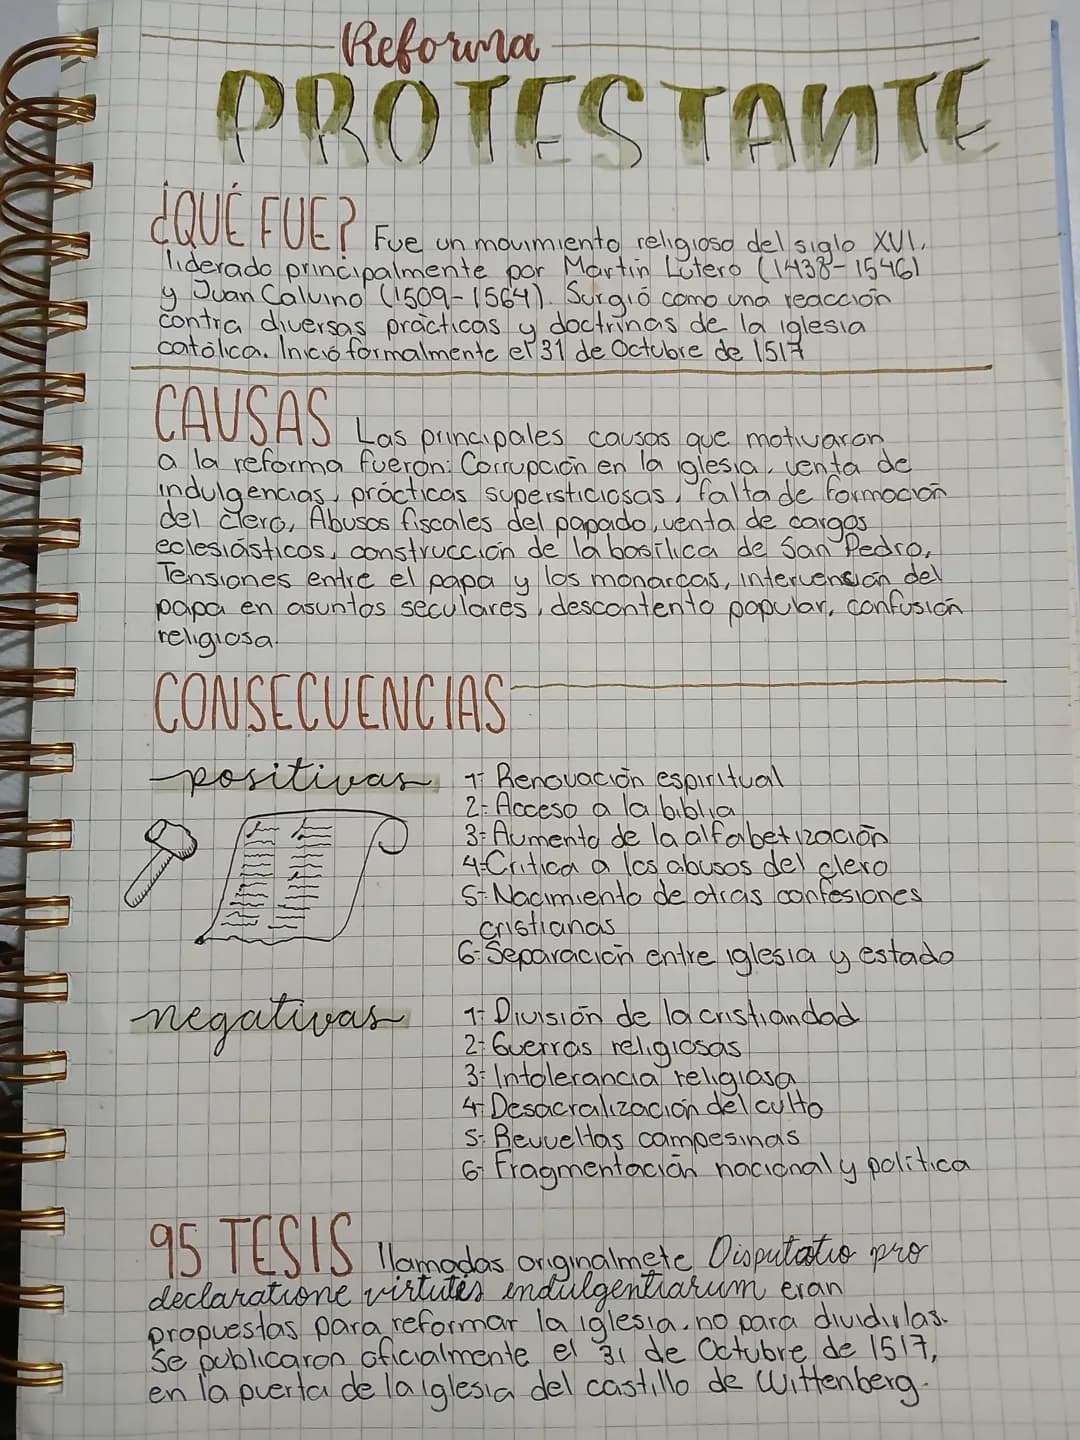 Reforma
PROTESTANTE
¿QUÉ FUE? Fue un movimiento religioso del siglo XVI,
liderado principalmente por Martín Lutero (1438-1546)
y Juan Calvino (1509-1564). Surgió como una reacción
contra diversas prácticas y doctrinas de la iglesia
católica. Inició formalmente el 31 de Octubre de 1517
CAUSAS Las principales causas que motivaron
a la reforma fueron: Corrupción en la iglesia, venta de
indulgencias, prácticas supersticiosas, falta de formación
del clero, Abusos fiscales del papado, venta de cargos
eclesiásticos, construcción de la basílica de San Pedro,
Tensiones entre el papa y los monarcas, intervensión del
papa en asuntos seculares, descontento popular, confusión
religiosa.
CONSECUENCIAS
positivas
1- Renovación espiritual
2- Acceso a la biblia
3- Aumento de la alfabetización
4- Crítica a los abusos del clero
5- Nacimiento de otras confesiones
cristianas
6- Separación entre iglesia y estado
negativas
1- División de la cristiandad
2- Guerras religiosas
3- Intolerancia religiosa
4- Desacralización del culto
5- Revueltas campesinas
6- Fragmentación nacional y política
95 TESIS llamadas originalmete Disputatio pro
declaratione virtutes indulgentiarum eran
propuestas para reformar la iglesia, no para dividirlas.
Se publicaron oficialmente el 31 de Octubre de 1517,
en la puerta de la iglesia del castillo de Wittenberg.